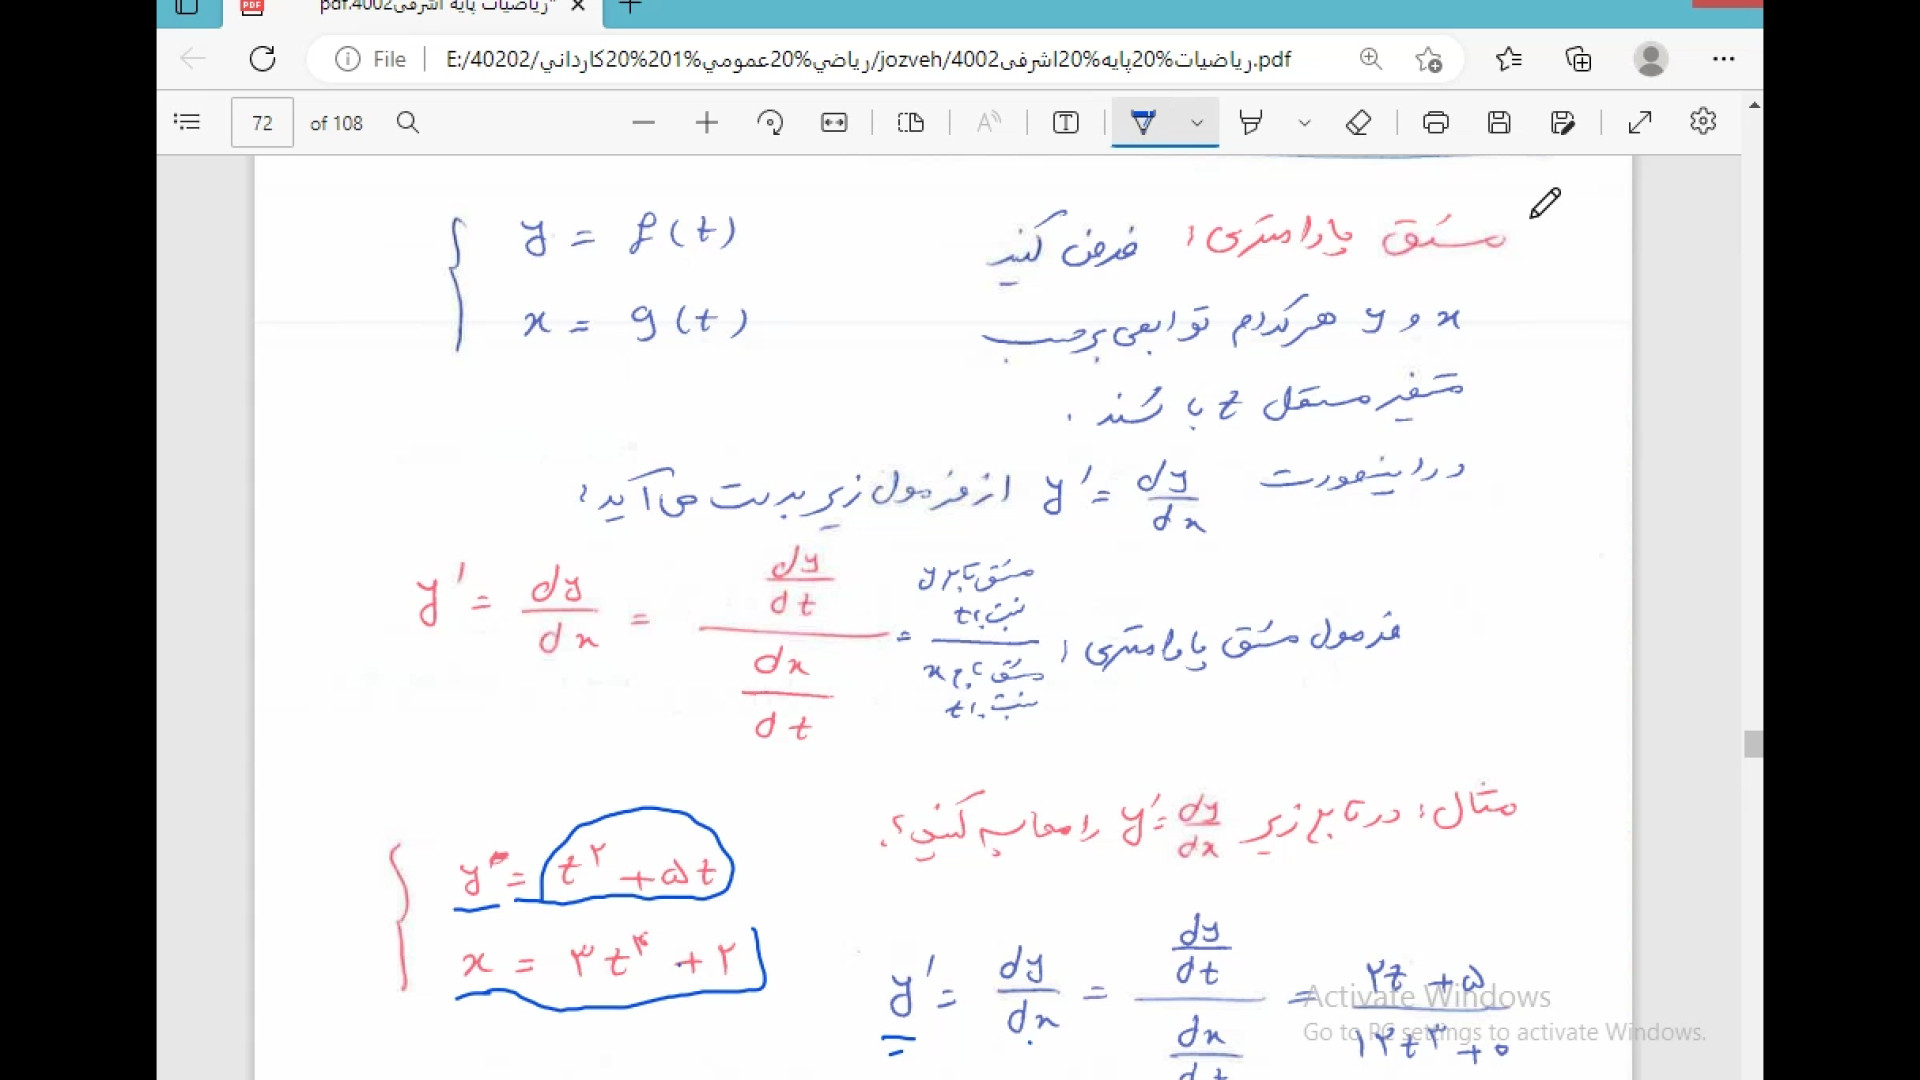 ریاضیات پایه اشرفی4002.pdf
File
E:/40202/رياضي%20عمومي%201%20كارداني/jozveh/4002رياضيات%20پایه%20اشرفی.pdf
72 of 108
مشتق پارامتری: فرض کنید
y = f(t)
x و y هرکدام توابعی برحسب
x = g(t)
متغیر مستقل t باشند.
در اینصورت y' = dy/dx از فرمول زیر بدست می‌آید:
فرمول مشتق پارامتری: y' = dy/dx = (dy/dt)/(dx/dt) = مشتق تابع y نسبت به t / مشتق تابع x نسبت به t
مثال: در تابع زیر y' = dy/dx را محاسبه کنید؟
y = t^۲ + ۵t
x = ۳t^۴ + ۲
y' = dy/dx = (dy/dt)/(dx/dt) = (۲t + ۵)/(۱۲t^۳ + ۰)
Activate Windows
Go to PC settings to activate Windows.